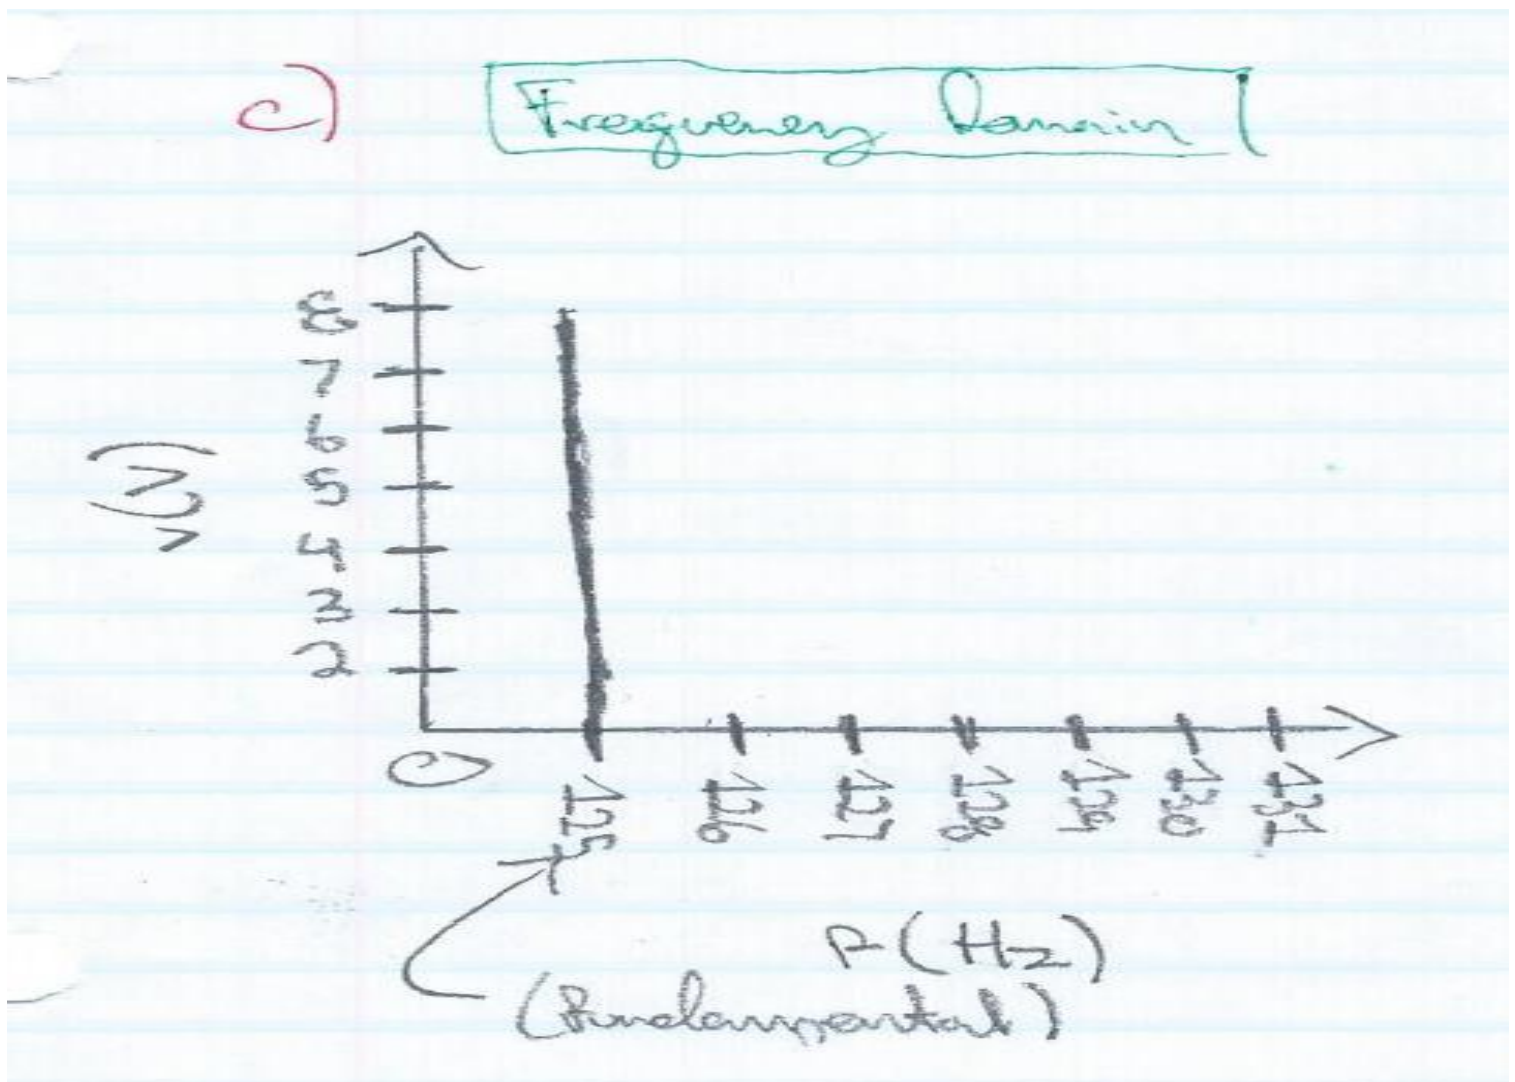 c) Frequency Domain
8
7
6
5
4
3
2
v(V)
0
125 126 127 128 129 130 131
F(Hz)
(Fundamental)